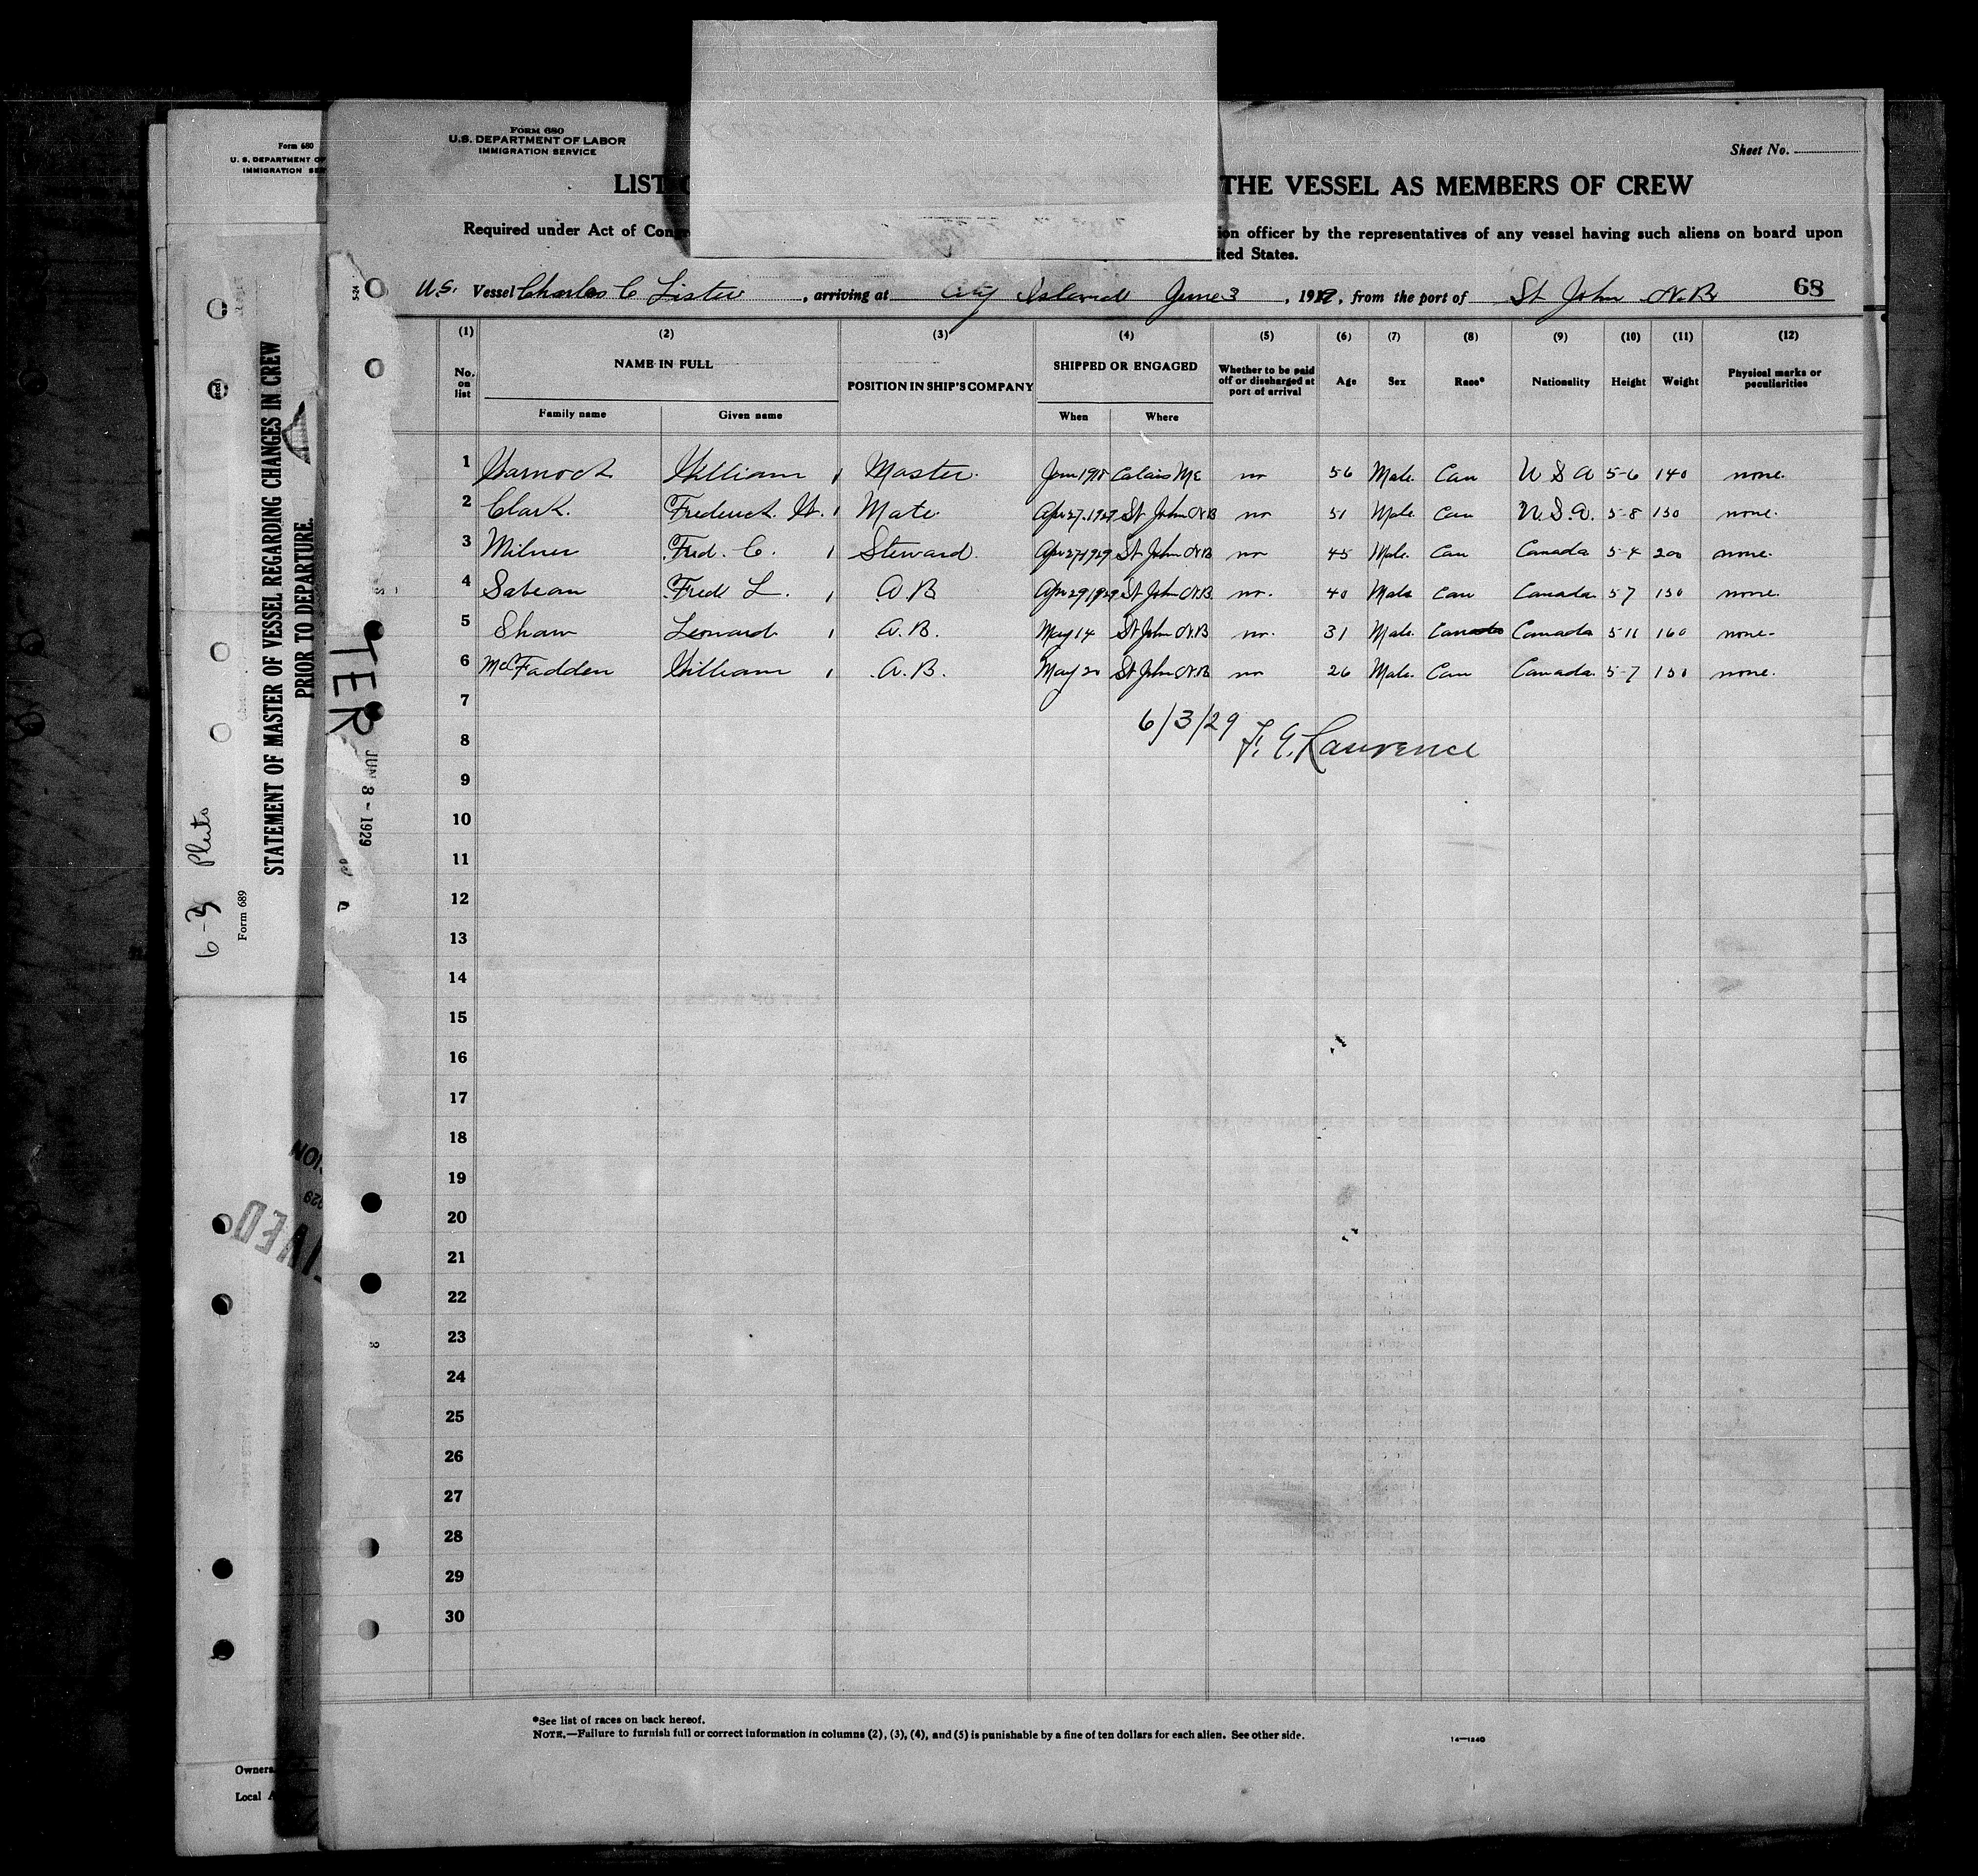 Form 680
U. S. DEPARTMENT OF
IMMIGRATION SER
STATEMENT OF MASTER OF VESSEL REGARDING CHANGES IN CREW
PRIOR TO DEPARTURE.
6-3 Pluto
Form 689
Owners
Local A
TER
JUN 8 - 1929
FORM 680
U.S. DEPARTMENT OF LABOR
IMMIGRATION SERVICE
Sheet No.
LIST THE VESSEL AS MEMBERS OF CREW
Required under Act of Congre ion officer by the representatives of any vessel having such aliens on board upon
ited States.
U.S. Vessel Charles C Lister, arriving at City Island June 3, 19, from the port of St John N.B 68
(1) (2) (3) (4) (5) (6) (7) (8) (9) (10) (11) (12)
No. on list NAME IN FULL POSITION IN SHIP'S COMPANY SHIPPED OR ENGAGED Whether to be paid off or discharged at port of arrival Age Sex Race* Nationality Height Weight Physical marks or peculiarities
Family name Given name When Where
1 William Master. 1918 Calais Me no 56 Male. Can U S A 5-6 140 none.
2 Clark. Frederick H. Mate Apr 27. 1929 St John N.B no 51 Male. Can U.S.A. 5-8 150 none.
3 Milner Fred. C. Steward. Apr 27 1929 St John N.B no 45 Male. Can Canada 5-4 200 none.
4 Sabean Fred L. A.B Apr 29 1929 St John N.B. no. 40 Male Can Canada 5 7 150 none.
5 Shaw Leonard A.B. May 14 St John N.B no. 31 Male. Canada Canada 5 11 160 none.
6 McFadden William A.B. May 20 St John N.B no 26 Male. Can Canada. 5-7 150 none.
7
8
6/3/29 F. E. Lawrence
9
10
11
12
13
14
15
16
17
18
19
20
21
22
23
24
25
26
27
28
29
30
*See list of races on back hereof.
NOTE.—Failure to furnish full or correct information in columns (2), (3), (4), and (5) is punishable by a fine of ten dollars for each alien. See other side.
14—1240